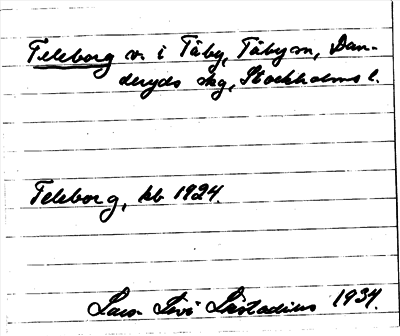 Teleborg v. i Täby, Täby sn, Dan-
deryds skg, Stockholms l.
Teleborg, kb 1924.
Lars Levi Læstadius 1934.